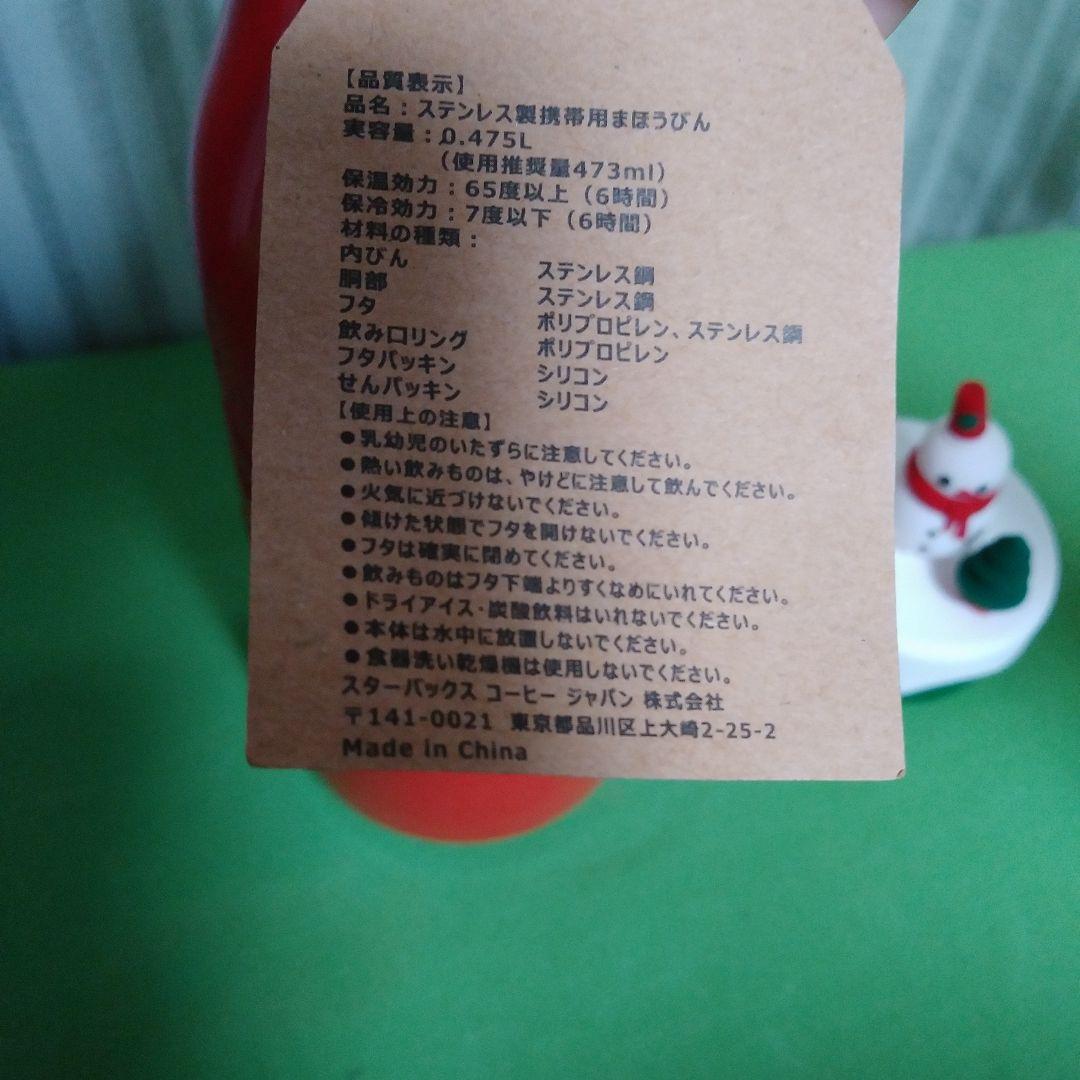 【品質表示】
品名：ステンレス製携帯用まほうびん
実容量：0.475L
（使用推奨量473ml）
保温効力：65度以上（6時間）
保冷効力：7度以下（6時間）
材料の種類：
内びん ステンレス鋼
胴部 ステンレス鋼
フタ ポリプロピレン、ステンレス鋼
飲み口リング ポリプロピレン
フタパッキン シリコン
せんパッキン シリコン
【使用上の注意】
●乳幼児のいたずらに注意してください。
●熱い飲みものは、やけどに注意して飲んでください。
●火気に近づけないでください。
●傾けた状態でフタを開けないでください。
●フタは確実に閉めてください。
●飲みものはフタ下端よりすくなめにいれてください。
●ドライアイス・炭酸飲料はいれないでください。
●本体は水中に放置しないでください。
●食器洗い乾燥機は使用しないでください。
スターバックス コーヒー ジャパン 株式会社
〒141-0021 東京都品川区上大崎2-25-2
Made in China